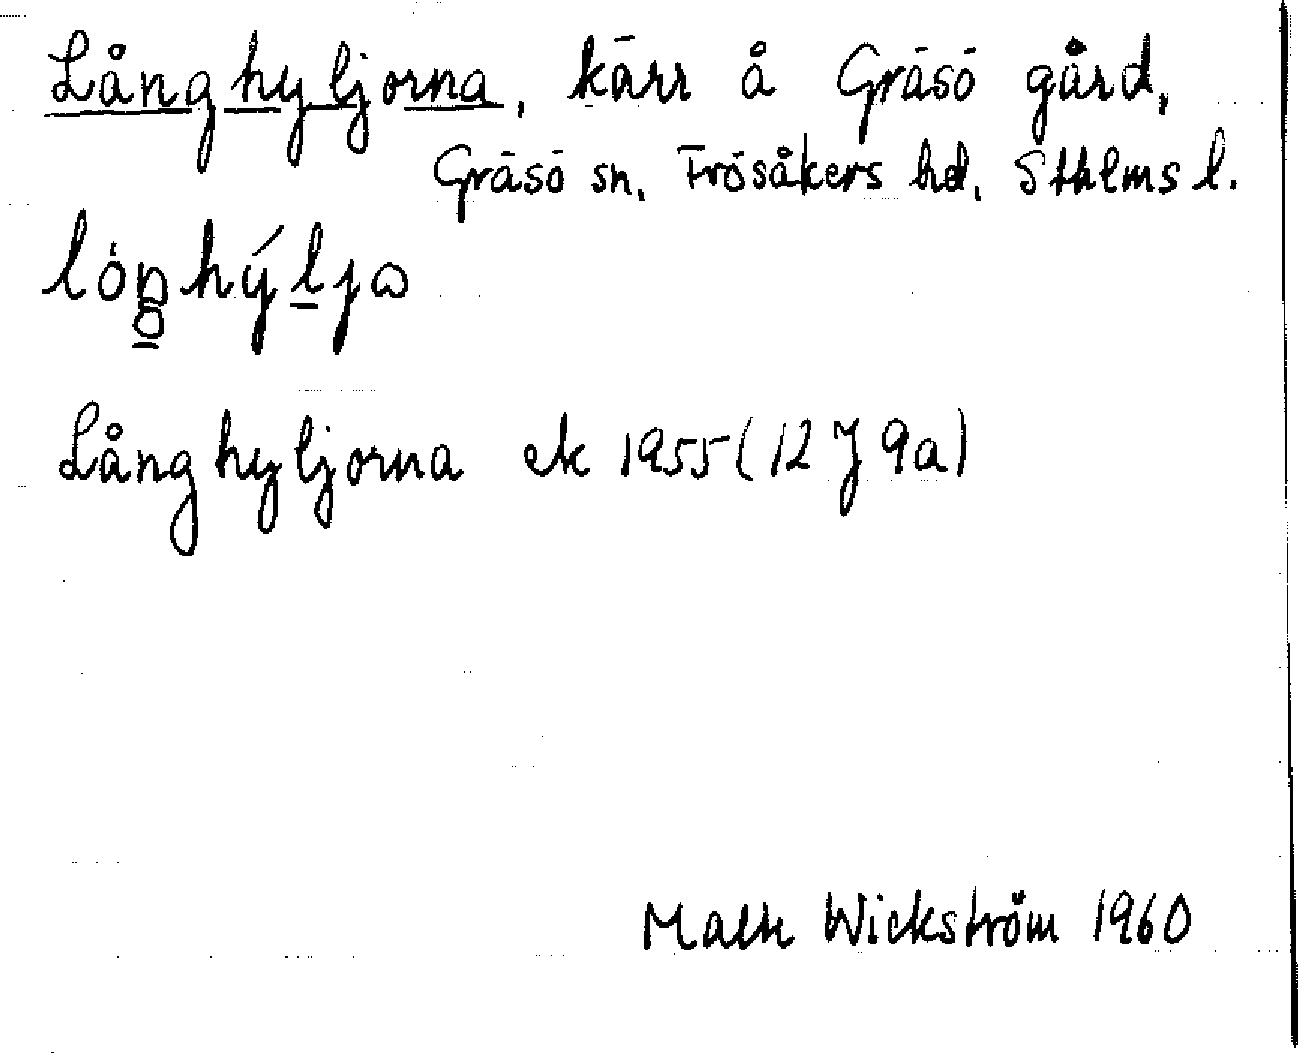 Långhyljorna, kärr å Gräsö gård,
Gräsö sn. Frösåkers hd. Sthlms l.
Långhyljorna ek 1955 (12 J 9a)
Wickström 1960